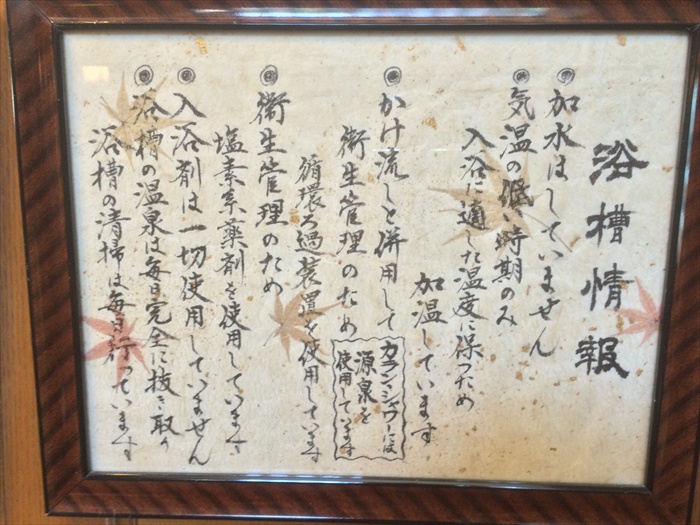 浴槽情報
◉加水はしていません
◉気温の低い時期のみ
入浴に適した温度に保つため
加温しています
◉かけ流しと併用して
衛生管理のため
循環ろ過装置を使用しています
カラン・シャワーには
源泉を
使用しています
◉衛生管理のため
塩素系薬剤を使用しています
◉入浴剤は一切使用していません
◉浴槽の温泉は毎日完全に抜き取り
浴槽の清掃は毎日行っています